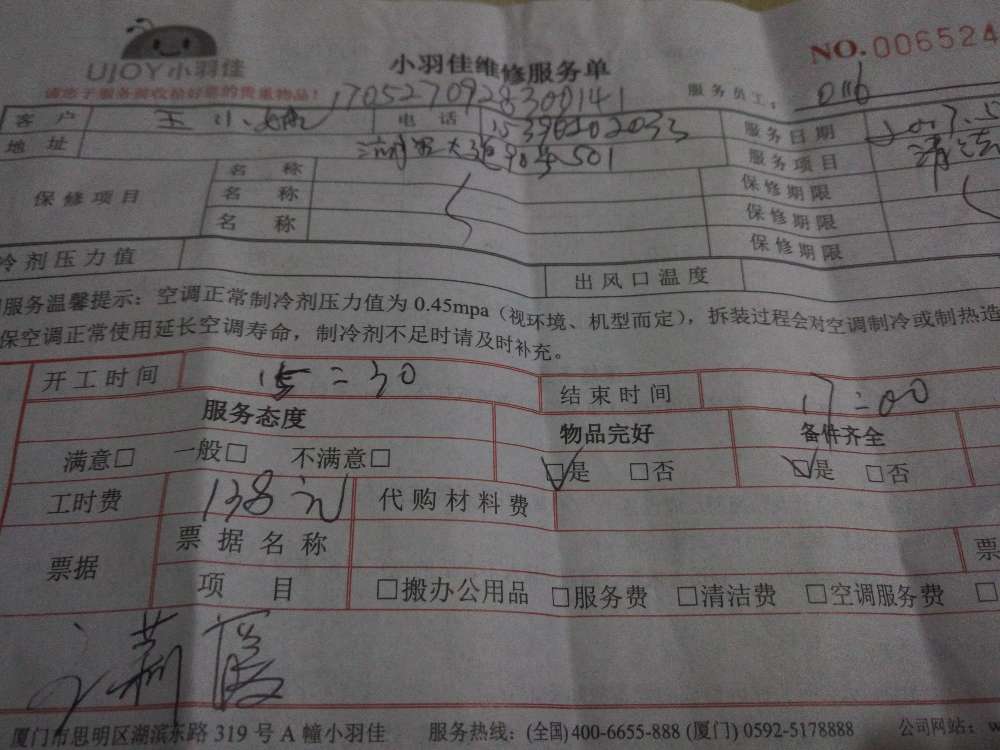 UJOY小羽佳
小羽佳维修服务单
NO.006524
17052709283300141
服务员工:
客户 王小 电话 15390202033 服务日期
地址 904-501 服务项目 清洁
保修项目 名称 保修期限
名称 保修期限
名称 保修期限
冷剂压力值 出风口温度
服务温馨提示:空调正常制冷剂压力值为0.45mpa(视环境、机型而定),拆装过程会对空调制冷或制热造
保空调正常使用延长空调寿命,制冷剂不足时请及时补充。
开工时间 15:30 结束时间 17:00
服务态度 物品完好 备件齐全
满意□ 一般□ 不满意□ □是 □否 □是 □否
工时费 138元 代购材料费
票据 票据名称 票
项目 □搬办公用品 □服务费 □清洁费 □空调服务费 □
厦门市思明区湖滨东路319号A幢小羽佳 服务热线:(全国)400-6655-888 (厦门) 0592-5178888 公司网站:w